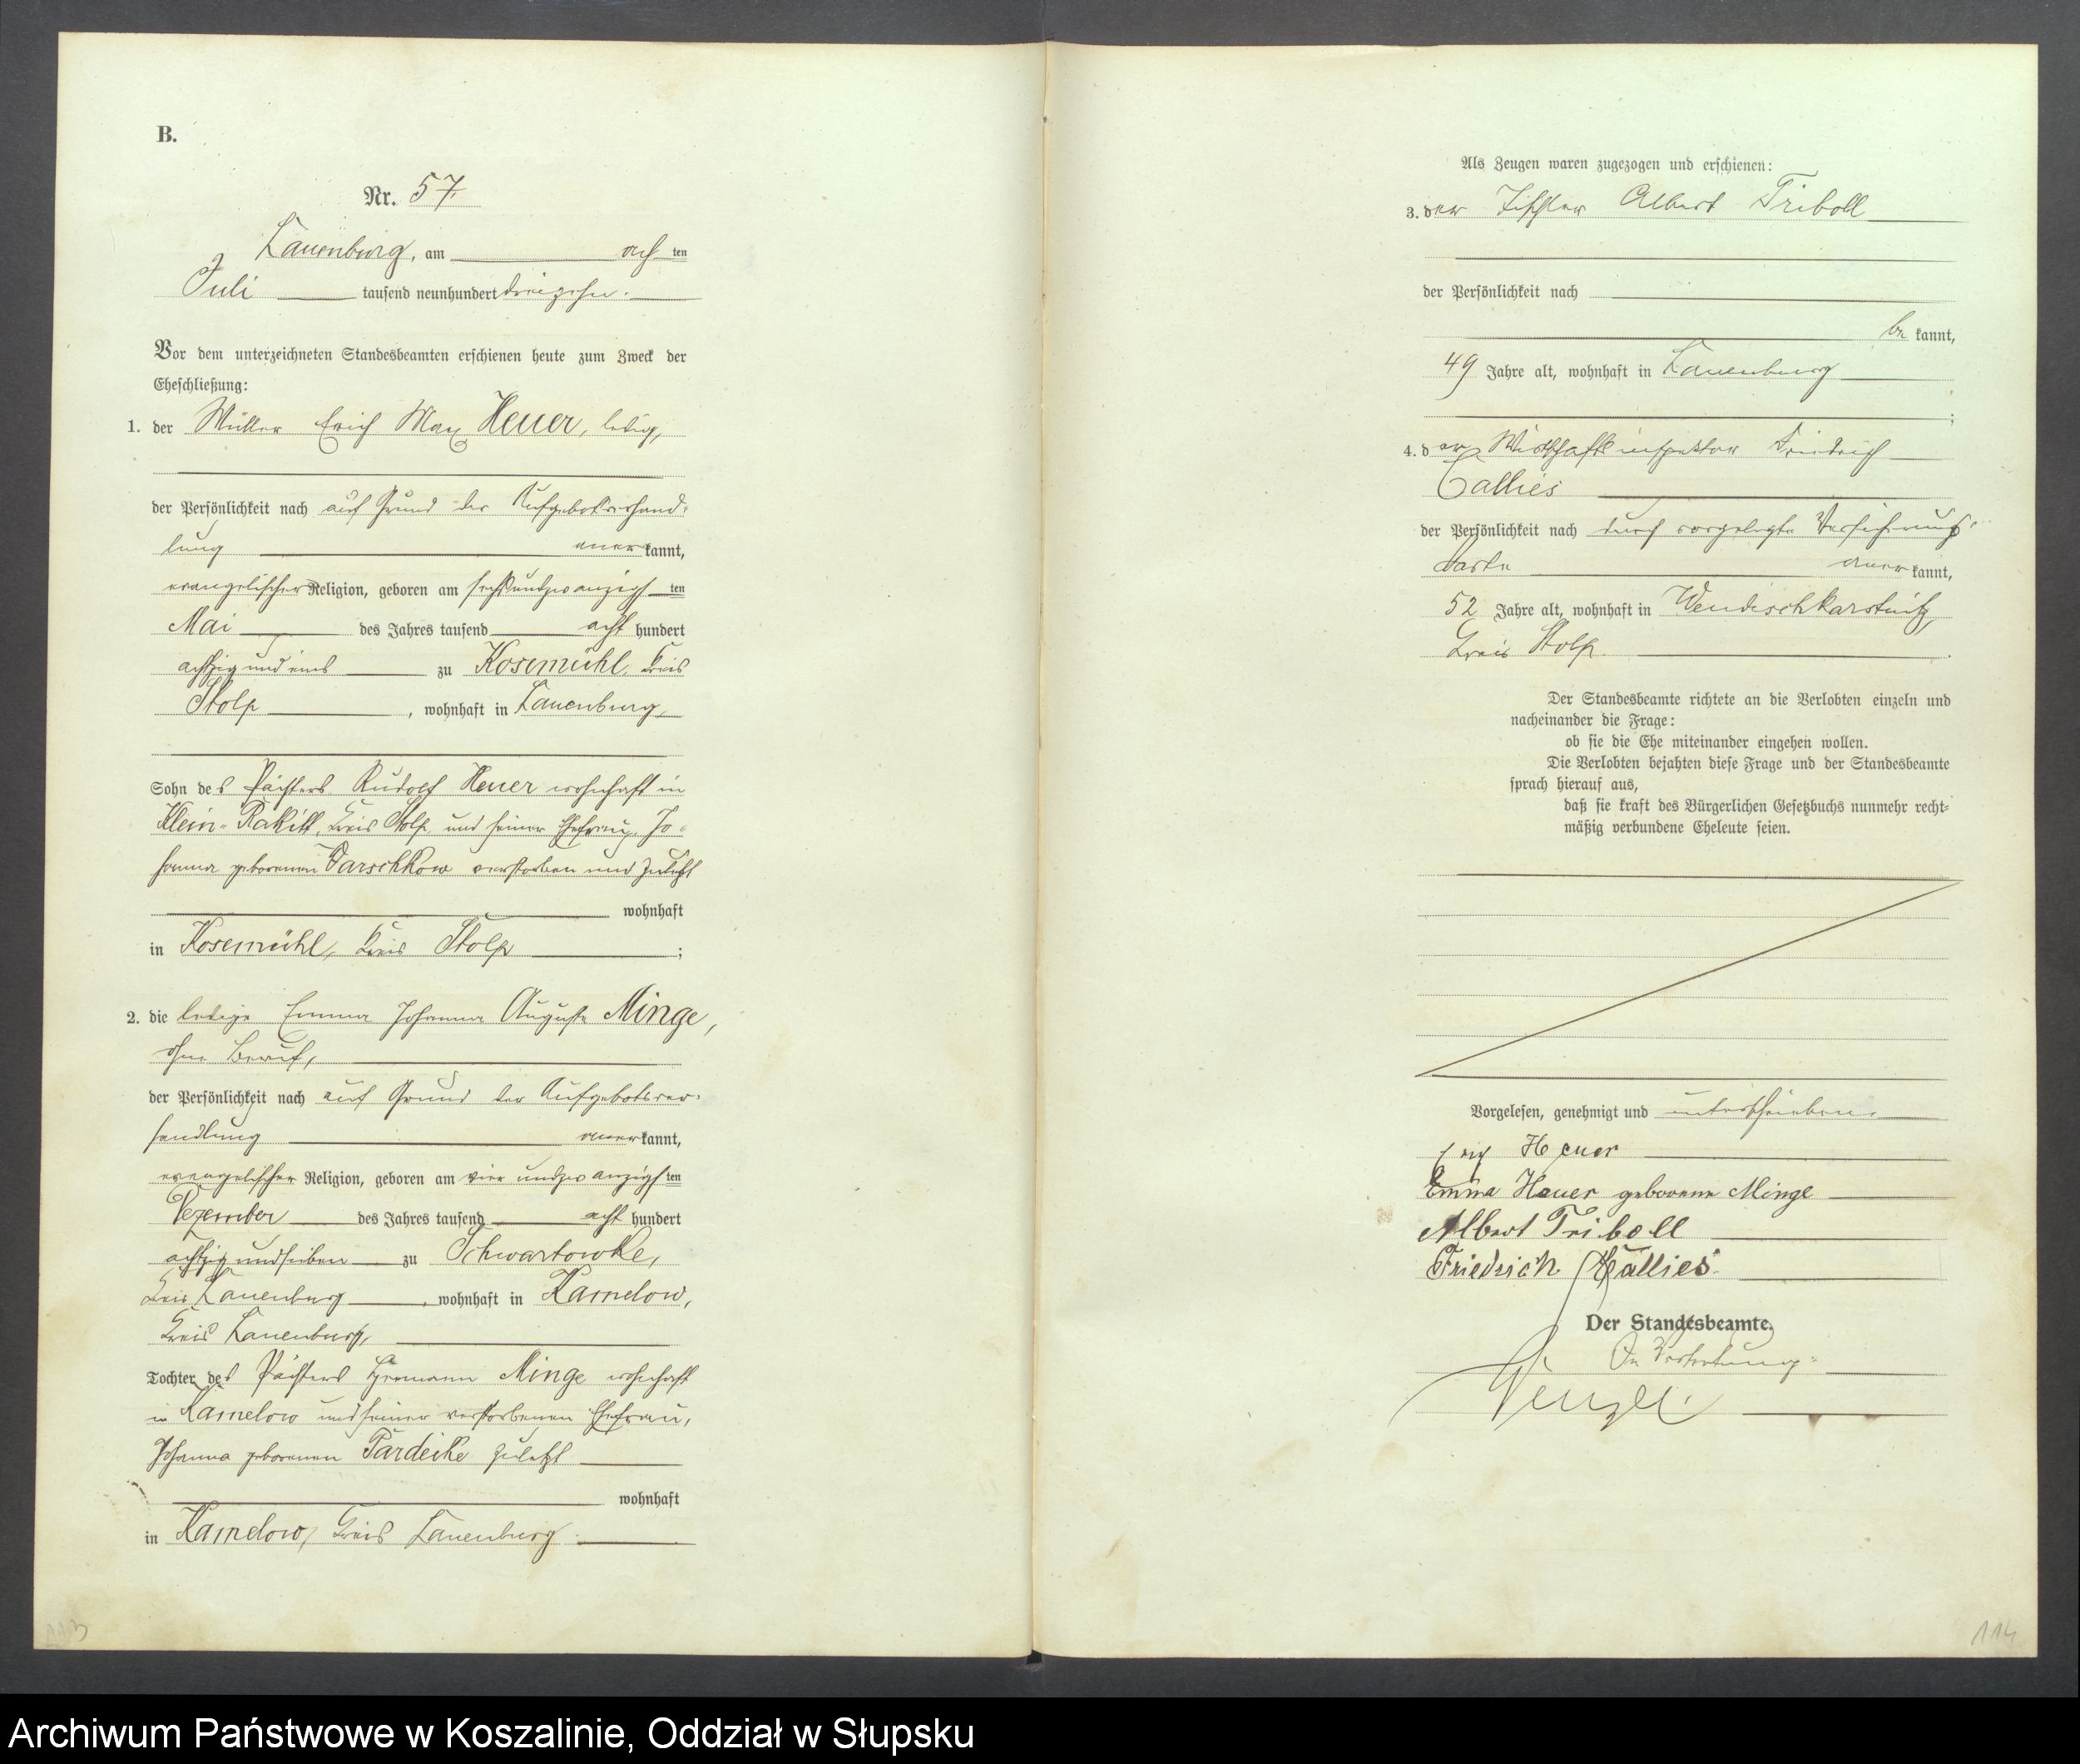 B.
Nr. 57.
Lauenburg, am ach ten
Juli tausend neunhundert dreizehn.
Vor dem unterzeichneten Standesbeamten erschienen heute zum Zweck der
Eheschließung:
1. der Müller Erich Max Heuer, ledig,
der Persönlichkeit nach auf Grund der Aufgebotsverhand-
lung aner kannt,
evangelischer Religion, geboren am sechsundzwanzigsten
Mai des Jahres tausend acht hundert
achtzig und eins zu Kosemühl, Kreis
Stolp, wohnhaft in Lauenburg,
Sohn des Pächters Rudolf Heuer wohnhaft in
Klein-Rakitt, Kreis Stolp, und seiner Ehefrau, Jo-
hanna geborenen Darschkow verstorben und zuletzt
wohnhaft
in Kosemühl, Kreis Stolp;
2. die ledige Emma Johanna Auguste Minge,
ohne Beruf,
der Persönlichkeit nach auf Grund der Aufgebotsver-
handlung aner kannt,
evangelischer Religion, geboren am vier undzwanzigsten
Dezember des Jahres tausend acht hundert
achtzig und sieben zu Schwartowke,
Kreis Lauenburg, wohnhaft in Kamelow,
Kreis Lauenburg,
Tochter des Pächters Hermann Minge wohnhaft
in Kamelow und seiner verstorbenen Ehefrau,
Johanna geborenen Pardeike zuletzt
wohnhaft
in Kamelow, Kreis Lauenburg.
113
Als Zeugen waren zugezogen und erschienen:
3. der Tischler Albert Triboll
der Persönlichkeit nach
be kannt,
49 Jahre alt, wohnhaft in Lauenburg
;
4. der Wirtschaftsinspektor Friedrich
Callies
der Persönlichkeit nach durch vorgelegte Versicherungs-
karte aner kannt,
52 Jahre alt, wohnhaft in Wendischkarstnitz,
Kreis Stolp.
Der Standesbeamte richtete an die Verlobten einzeln und
nacheinander die Frage:
ob sie die Ehe miteinander eingehen wollen.
Die Verlobten bejahten diese Frage und der Standesbeamte
sprach hierauf aus,
daß sie kraft des Bürgerlichen Gesetzbuchs nunmehr recht-
mäßig verbundene Eheleute seien.
Vorgelesen, genehmigt und unterschrieben.
Erich Heuer
Emma Heuer geborene Minge
Albert Triboll
Friedrich Callies
Der Standesbeamte.
In Vertretung:
114
Archiwum Państwowe w Koszalinie, Oddział w Słupsku